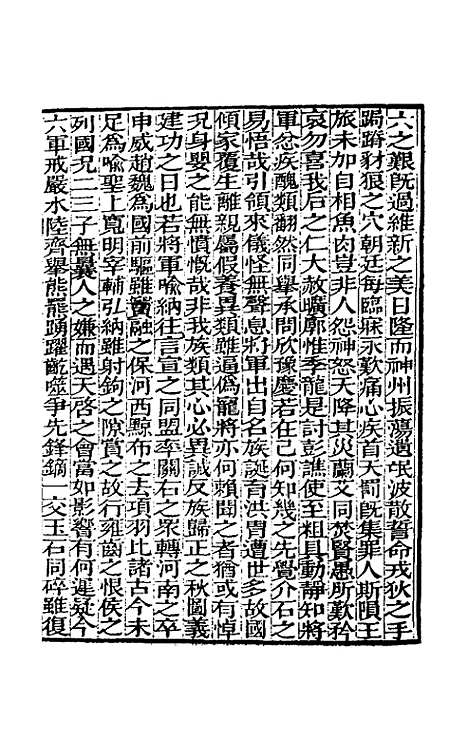 六之艱既過維新之美日隆而神州振蕩遺氓波散誓命戎狄之手
跼蹐豺狼之穴朝廷每臨寐永歎痛心疾首天罰既集罪人斯隕王
旅未加自相魚肉豈非人怨神怒天降其災蘭艾同焚賢愚所歎矜
哀勿喜我后之仁大赦曠廓惟季龍是討彭譙使至粗具動靜知將
軍忿疾醜類翻然同舉承問欣豫慶若在己何知幾之先覺介石之
易悟哉引領來儀怪無聲息將軍出自名族誕育洪胄遭世多故國
傾家覆生離親屬假養異類雖逼僞寵將亦何賴聞之者猶或有悼
況身嬰之能無憤慨哉非我族類其心必異誠反族歸正之秋圖義
建功之日也若將軍喻納往言宣之同盟率關右之眾轉河南之卒
申威趙魏爲國前驅雖竇融之保河西黥布之去項羽比諸古今未
足爲喻聖上寬明宰輔弘納雖射鉤之隙賞之故行雍齒之恨侯之
列國況二三子無曩人之嫌而遇天啓之會當如影響有何遲疑今
六軍戒嚴水陸齊舉熊羆踴躍齕噬爭先鋒鏑一交玉石同碎雖復